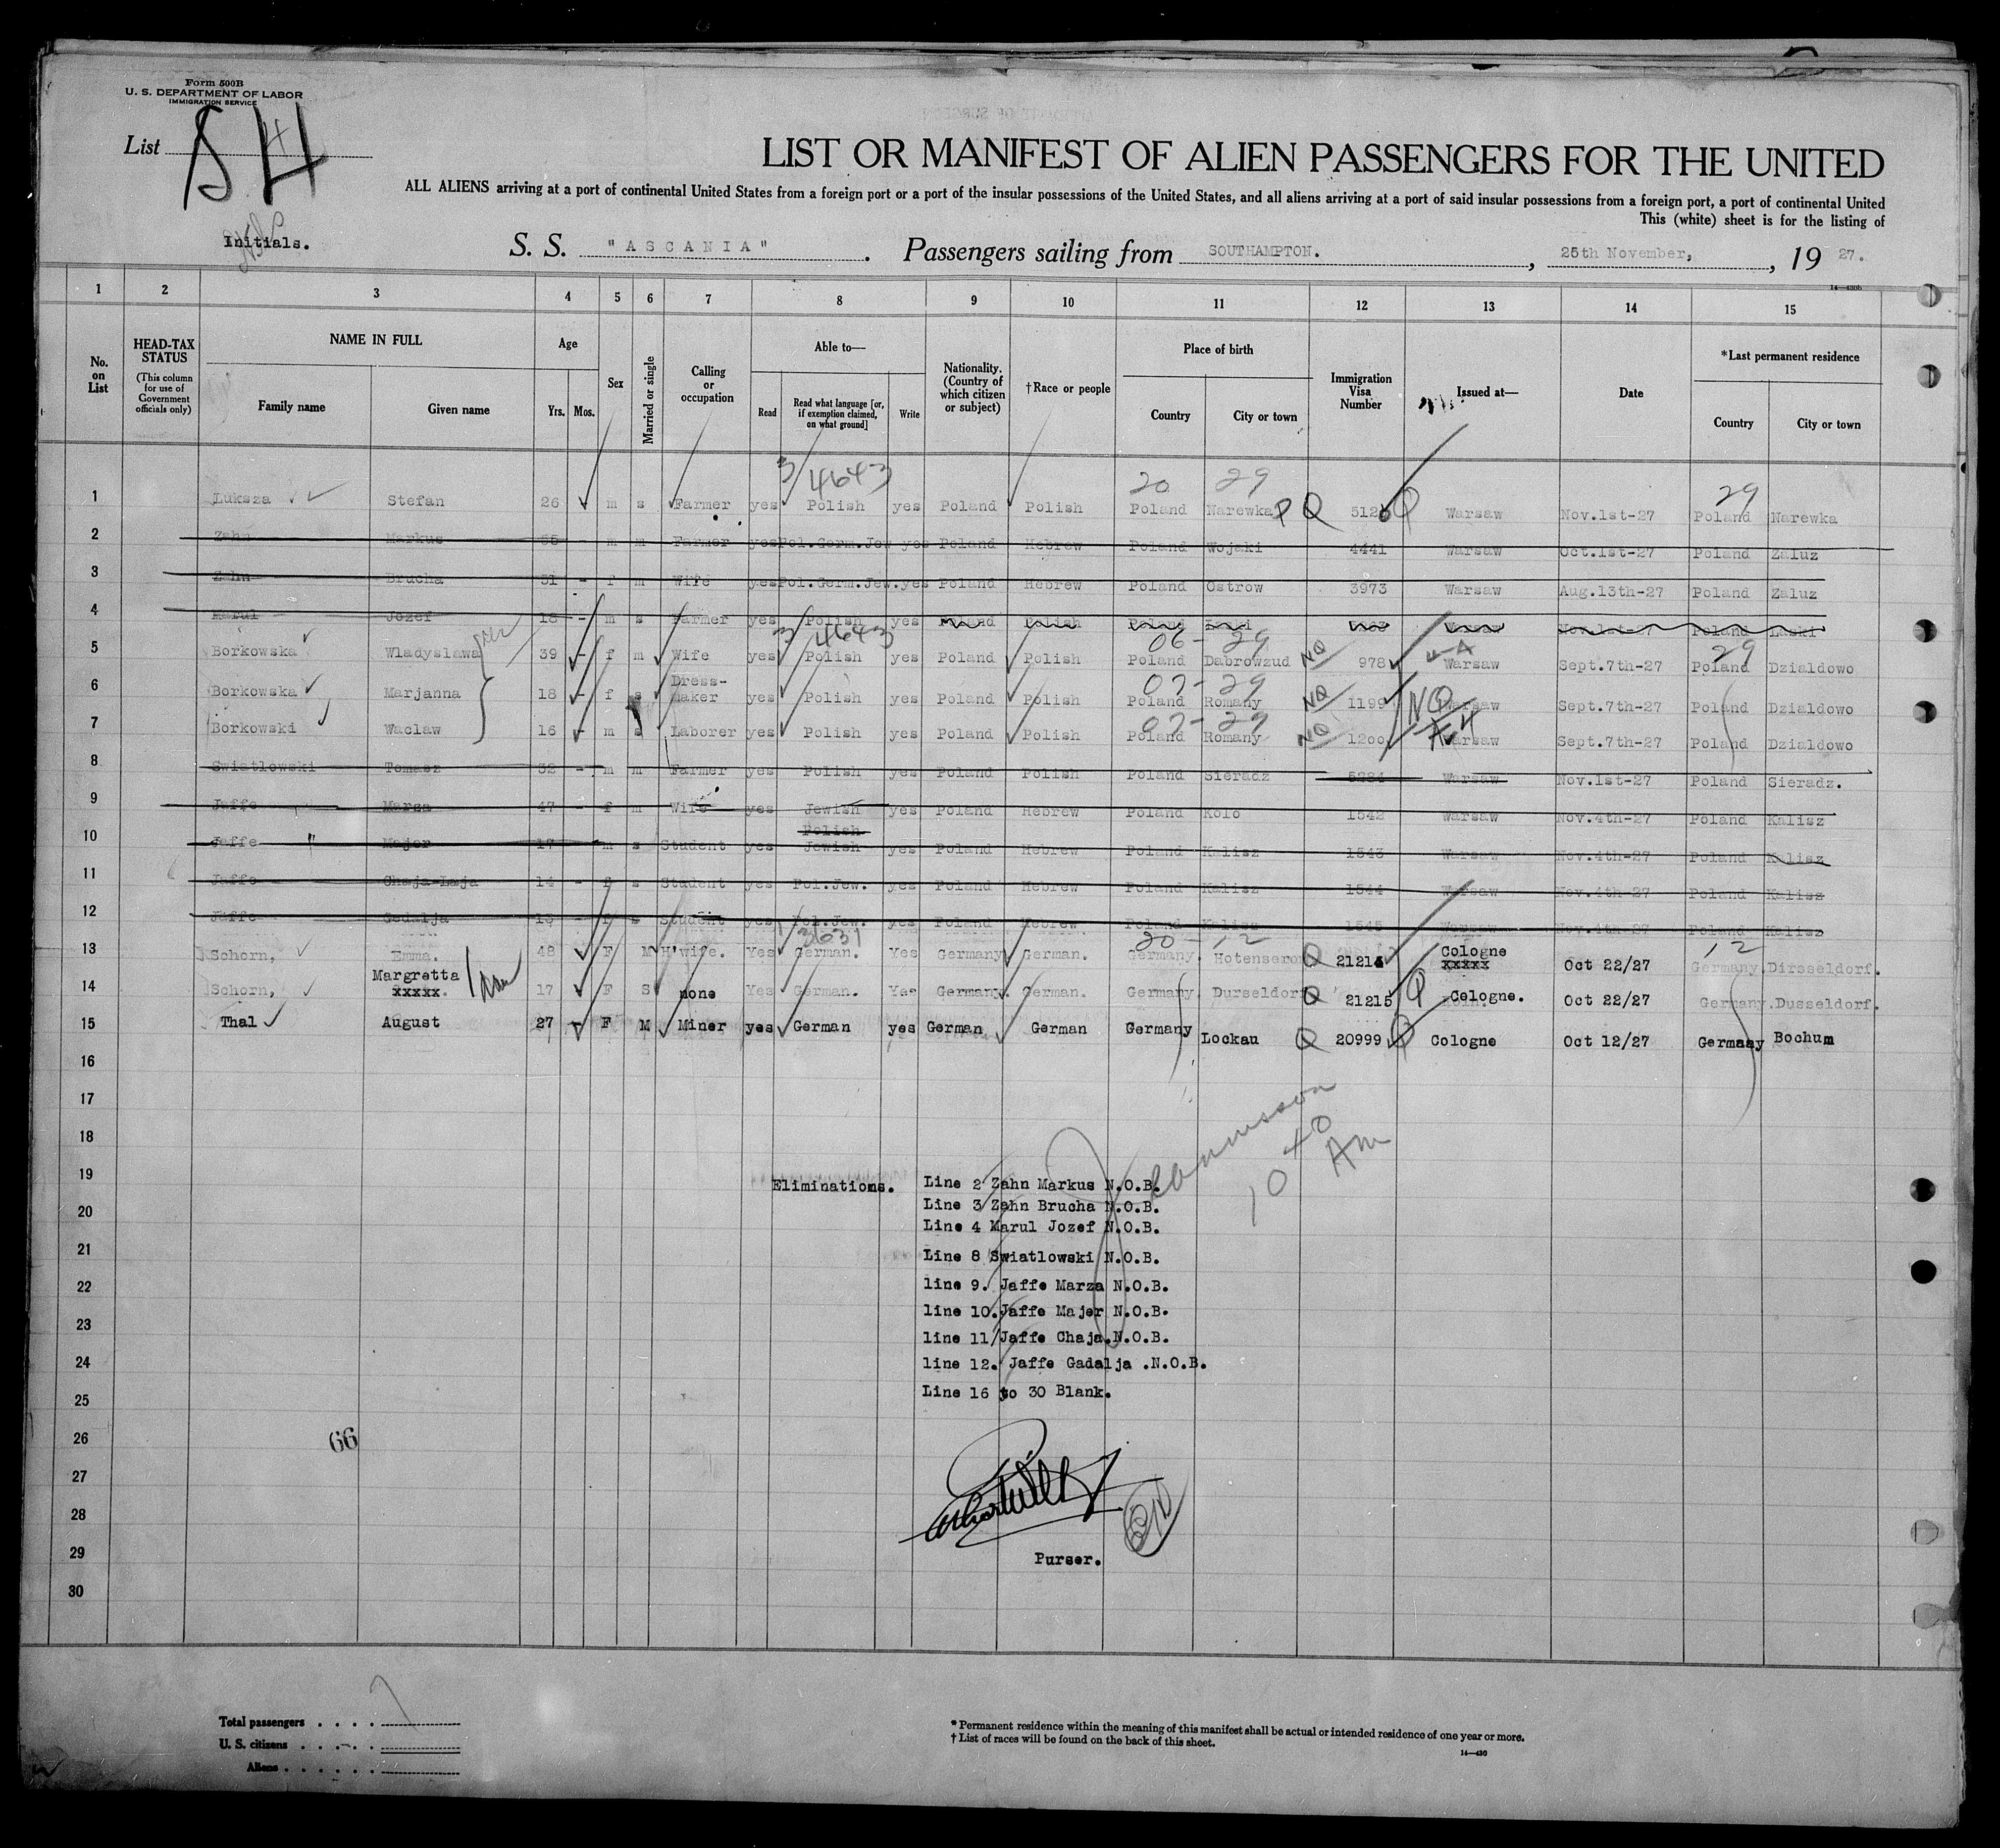 Form 500B
U. S. DEPARTMENT OF LABOR
IMMIGRATION SERVICE
List 4
LIST OR MANIFEST OF ALIEN PASSENGERS FOR THE UNITED
ALL ALIENS arriving at a port of continental United States from a foreign port or a port of the insular possessions of the United States, and all aliens arriving at a port of said insular possessions from a foreign port, a port of continental United
This (white) sheet is for the listing of
Initials.
S. S. "ASCANIA". Passengers sailing from SOUTHAMPTON., 25th November, 1927.
14-430b
1 2 3 4 5 6 7 8 9 10 11 12 13 14 15
No. on List
HEAD-TAX STATUS
(This column for use of Government officials only)
NAME IN FULL
Family name Given name
Age
Yrs. Mos.
Sex
Married or single
Calling or occupation
Able to—
Read
Read what language [or, if exemption claimed, on what ground]
Write
Nationality. (Country of which citizen or subject)
†Race or people
Place of birth
Country City or town
Immigration Visa Number
Issued at—
Date
*Last permanent residence
Country City or town
3/4643 20 29 29
1 Luksza Stefan 26 m s Farmer yes Polish yes Poland Polish Poland Narewka 5126 Warsaw Nov.1st-27 Poland Narewka
2 Zahn Markus 55 - m m Farmer yes Pol.Germ.Jew yes Poland Hebrew Poland Wojaki 4441 Warsaw Oct.1st-27 Poland Zaluz
3 Zahn Brucha 51 - f m Wife yes Pol.Germ.Jew.yes Poland Hebrew Poland Ostrow 3973 Warsaw Aug.13th-27 Poland Zaluz
4 Marul Jozef 18 - m s Farmer yes Polish yes Poland Polish Poland Warsaw Nov.1st-27 Poland Laski
3/4643 06-29 29
5 Borkowska Wladyslawa 39 - f m Wife yes Polish yes Poland Polish Poland Dabrowzud NQ 978 Warsaw Sept.7th-27 Poland Dzialdowo
07-29
6 Borkowska Marjanna 18 - f s Dress-maker yes Polish yes Poland Polish Poland Romany NQ 1199 NQ Warsaw Sept.7th-27 Poland Dzialdowo
07-29
7 Borkowski Waclaw 16 - m s Laborer yes Polish yes Poland Polish Poland Romany NQ 1200 Warsaw Sept.7th-27 Poland Dzialdowo
8 Swiatlowski Tomasz 32 - m m Farmer yes Polish yes Poland Polish Poland Sieradz 5284 Warsaw Nov.1st-27 Poland Sieradz.
9 Jaffe Marza 47 - f m Wife yes Jewish yes Poland Hebrew Poland Kolo 1542 Warsaw Nov.4th-27 Poland Kalisz
Polish
10 Jaffe " Majer 17 - m s Student yes Jewish yes Poland Hebrew Poland Kalisz 1543 Warsaw Nov.4th-27 Poland Kalisz
11 Jaffe Chaja-Laja 14 - f s Student yes Pol.Jew. yes Poland Hebrew Poland Kalisz 1544 Warsaw Nov.4th-27 Poland Kalisz
12 Jaffe Gadalja - s Student yes Pol.Jew. yes Poland Hebrew Poland Kalisz 1545 Warsaw Nov.4th-27 Poland Kalisz
3631 20-12 12
13 Schorn, Emma. 48 F M H'wife. Yes German. Yes Germany German. Germany. Q 21214 Cologne xxxxx Oct 22/27 Germany. Dirsseldorf.
14 Schorn, Margretta xxxxx. 17 F S none Yes German. Yes Germany. German. Germany. Durseldorf Q 21215 Q Cologne. Oct 22/27 Germany. Dusseldorf.
15 Thal August 27 F M Miner yes German yes German German Germany Lockau Q 20999 Cologne Oct 12/27 Germany Bochum
16
17
18
10 40 Am
19 Eliminations. Line 2 Zahn Markus N.O.B.
20 Line 3 Zahn Brucha N.O.B.
Line 4 Marul Jozef N.O.B.
21 Line 8 Swiatlowski N.O.B.
22 line 9. Jaffe Marza N.O.B.
line 10. Jaffe Majer N.O.B.
23 line 11 Jaffe Chaja.N.O.B.
24 line 12. Jaffe Gadalja .N.O.B.
25 Line 16 to 30 Blank.
26 66
27
28
29 Purser.
30
Total passengers . . . . 7
U. S. citizens . . . - . .
Aliens . . . . . .
* Permanent residence within the meaning of this manifest shall be actual or intended residence of one year or more.
† List of races will be found on the back of this sheet.
14—430